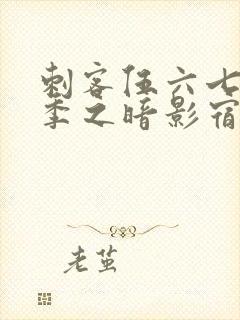 刺客伍六七
季之暗影宿
老茧